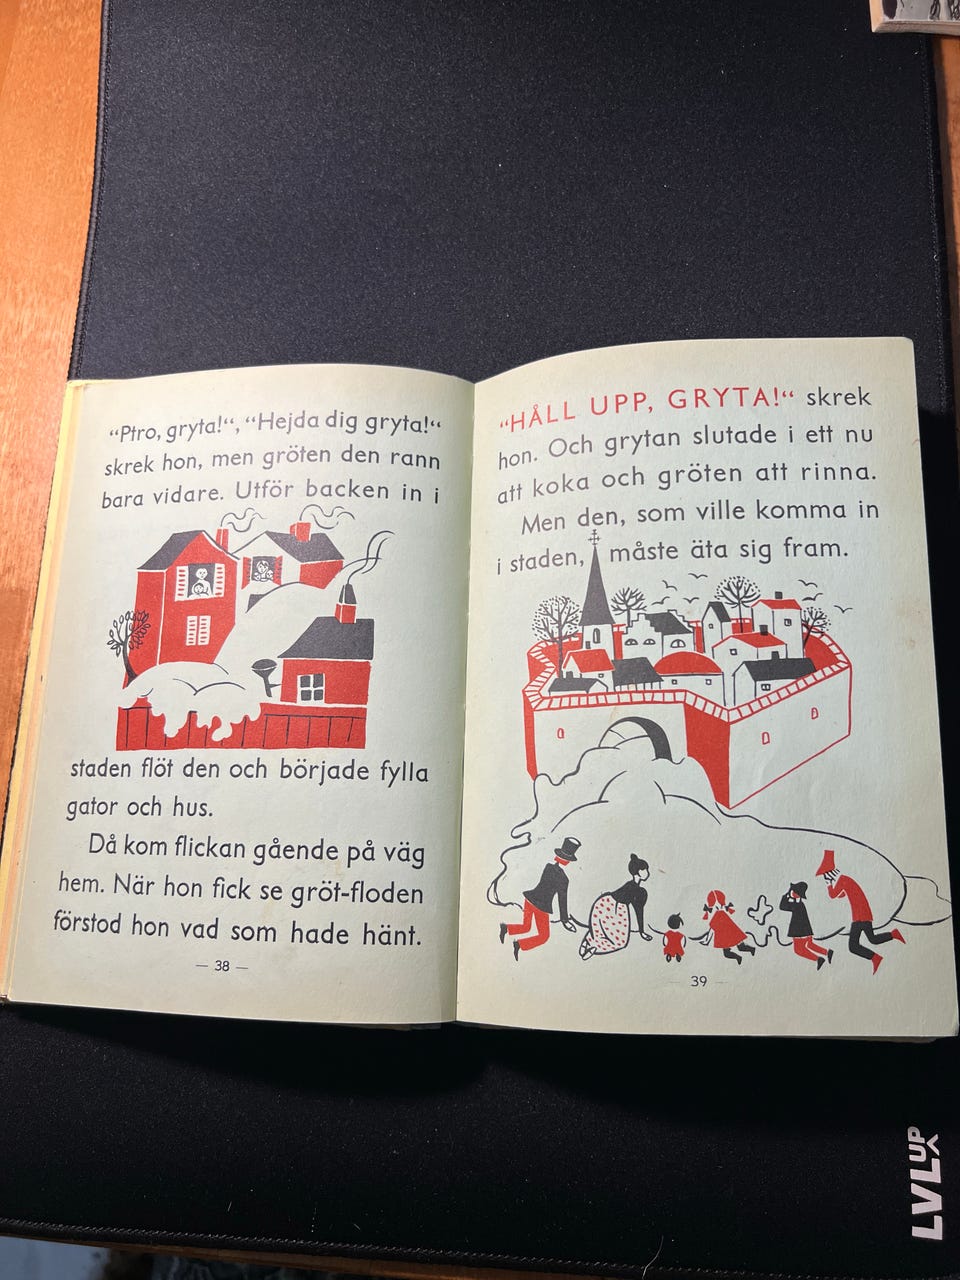 “Ptro, gryta!“, “Hejda dig gryta!“
skrek hon, men gröten den rann
bara vidare. Utför backen in i
staden flöt den och började fylla
gator och hus.
Då kom flickan gående på väg
hem. När hon fick se gröt-floden
förstod hon vad som hade hänt.
— 38 —
“HÅLL UPP, GRYTA!“ skrek
hon. Och grytan slutade i ett nu
att koka och gröten att rinna.
Men den, som ville komma in
i staden, måste äta sig fram.
— 39 —
LVLUP